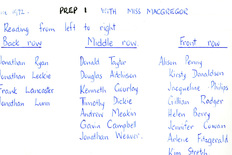 PREP 1 WITH MISS MACGREGOR
Reading from left to right
Back row Middle row Front row
Jonathan Ryan Donald Taylor Alison Penny
Jonathan Leckie Douglas Atkinson Kirsty Donaldson
Frank Lancaster Kenneth Gourlay Jacqueline Philips
Jonathan Lunn Timothy Dickie Gillian Rodger
Andrew Meakin Helen Berry
Gavin Campbell Jennifer Cowan
Jonathan Weaver. Arlene Fitzgerald
Kim